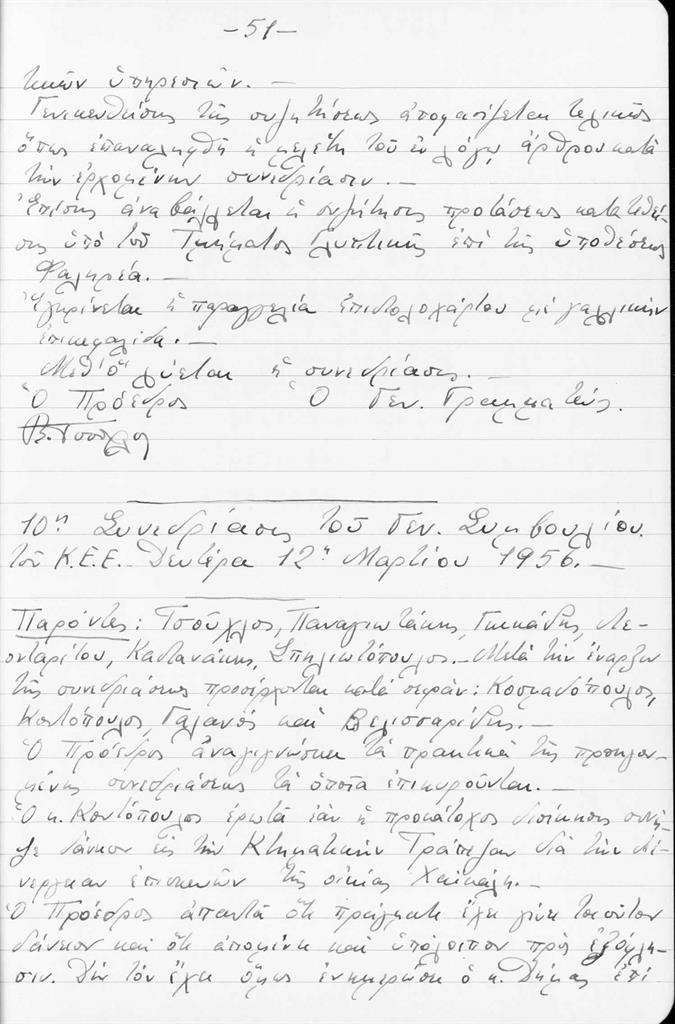 -51-
τικῶν ὑπηρεσιῶν. -
Γενικευθείσης τῆς συζητήσεως ἀποφασίζεται τελικῶς
ὅπως ἐπαναληφθῇ ἡ μελέτη τοῦ ἐν λόγῳ ἄρθρου κατὰ
τὴν ἐρχομένην συνεδρίασιν. -
Ἐπίσης ἀναβάλλεται ἡ συζήτησις προτάσεως κατατεθεί-
σης ὑπὸ τοῦ Τμήματος Γλυπτικῆς ἐπὶ τῆς ὑποθέσεως
Φαληρέα. -
Ἐγκρίνεται ἡ παραγγελία ἐπιστολοχάρτου μὲ γαλλικὴν
ἐπικεφαλίδα. -
Μεθ' ὃ λύεται ἡ συνεδρίασις. -
Ὁ Πρόεδρος Ὁ Γεν. Γραμματεύς.
Β. Τσοῦχλος
10η Συνεδρίασις τοῦ Γεν. Συμβουλίου.
τοῦ Κ.Ε.Ε. Δευτέρα 12η Μαρτίου 1956. -
Παρόντες: Τσοῦχλος, Παναγιωτάκης, Γκικάδης, Λε-
ονταρίτου, Καστανάκης, Σπηλιωτόπουλος. - Μετὰ τὴν ἔναρξιν
τῆς συνεδριάσεως προσέρχονται κατὰ σειράν: Κοσμαδόπουλος,
Κοντόπουλος, Γαλανός καὶ Βελισσαρίδης. -
Ὁ Πρόεδρος ἀναγιγνώσκει τὰ πρακτικὰ τῆς προηγου-
μένης συνεδριάσεως τὰ ὁποῖα ἐπικυροῦνται. -
Ὁ κ. Κοντόπουλος ἐρωτᾶ ἐὰν ἡ προκάτοχος διοίκησις συνῆ-
ψε δάνειον εἰς τὴν Κτηματικὴν Τράπεζαν διὰ τὴν δι-
ενέργειαν ἐπισκευῶν τῆς οἰκίας Χαϊκάλη. -
Ὁ Πρόεδρος ἀπαντᾶ ὅτι πράγματι ἔχει γίνει τοιοῦτον
δάνειον καὶ ὅτι ἀπομένει καὶ ὑπόλοιπον πρὸς ἐξόφλη-
σιν. Δὲν τὸν ἔχει ὅμως ἐνημερώσει ὁ κ. Δήμας ἐπὶ